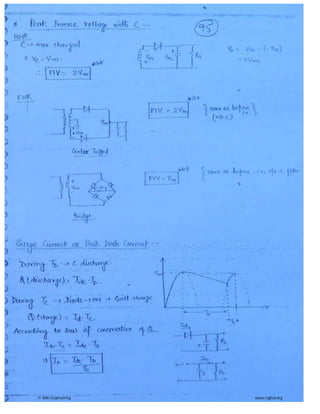 * Peak Inverse Voltage with C :-
95
HWR
C → max charged
* Vc = Vm
∴ PIV = 2Vm
Vo = Vm - (-Vm)
= 2Vm
FWR
Vm
PIV = 2Vm
{same as before}
(w/o C)
Center Tapped
PIV = Vm
{same as before, i.e, w/o C filter
Bridge
Surge Current or Peak Diode Current :-
During TD → C discharge
Q(discharge) = Idc . TD
During TC → Diode → on → C will charge
Q(charge) = Id . TC
According to law of conservation of Q
Ip . Tc = Idc . TD
⇒ Ip = Idc . TD / TC
© Wiki Engineering
www.raghul.org